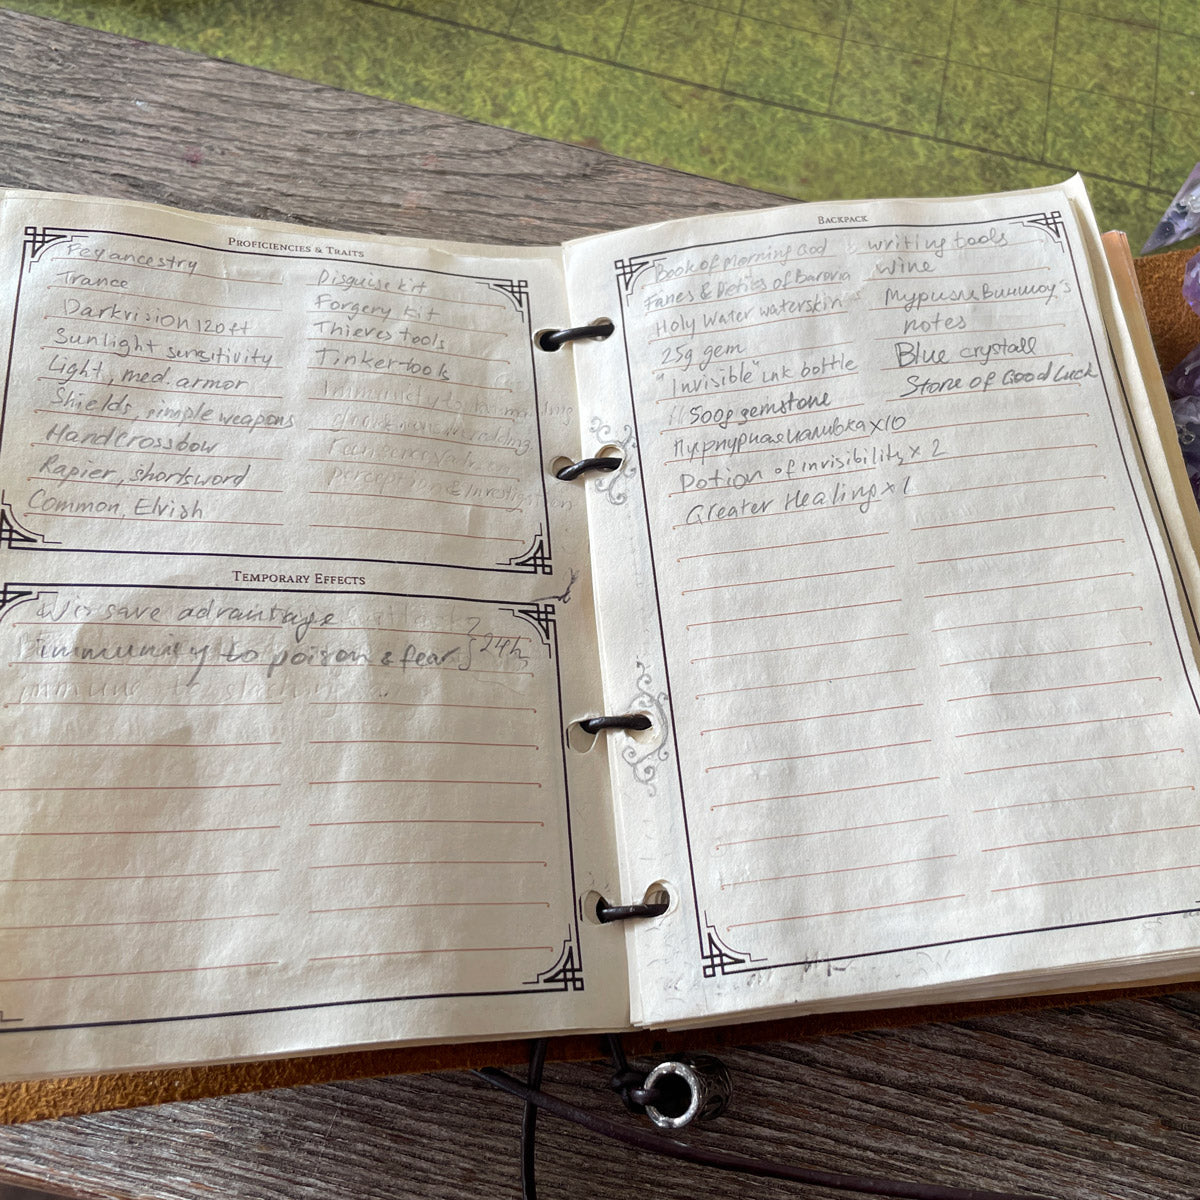 PROFICIENCIES & TRAITS
Fey ancestry
Trance
Darkvision 120ft
Sunlight sensitivity
Light, med. armor
Shields, simple weapons
Handcrossbow
Rapier, shortsword
Common, Elvish
Disguise kit
Forgery kit
Thieves tools
Tinker tools
Immunity to
perception & Investigation
TEMPORARY EFFECTS
Wis save advantage
immunity to poison & fear 24h
immune to
BACKPACK
Book of Morning God
Fanes & Deties of Barovia
Holy Water waterskin
25g gem
"Invisible" ink bottle
500g gemstone
Пурпурная x10
Potion of invisibility x 2
Greater Healing x 1
writing tools
Wine
notes
Blue crystall
Stone of Good Luck